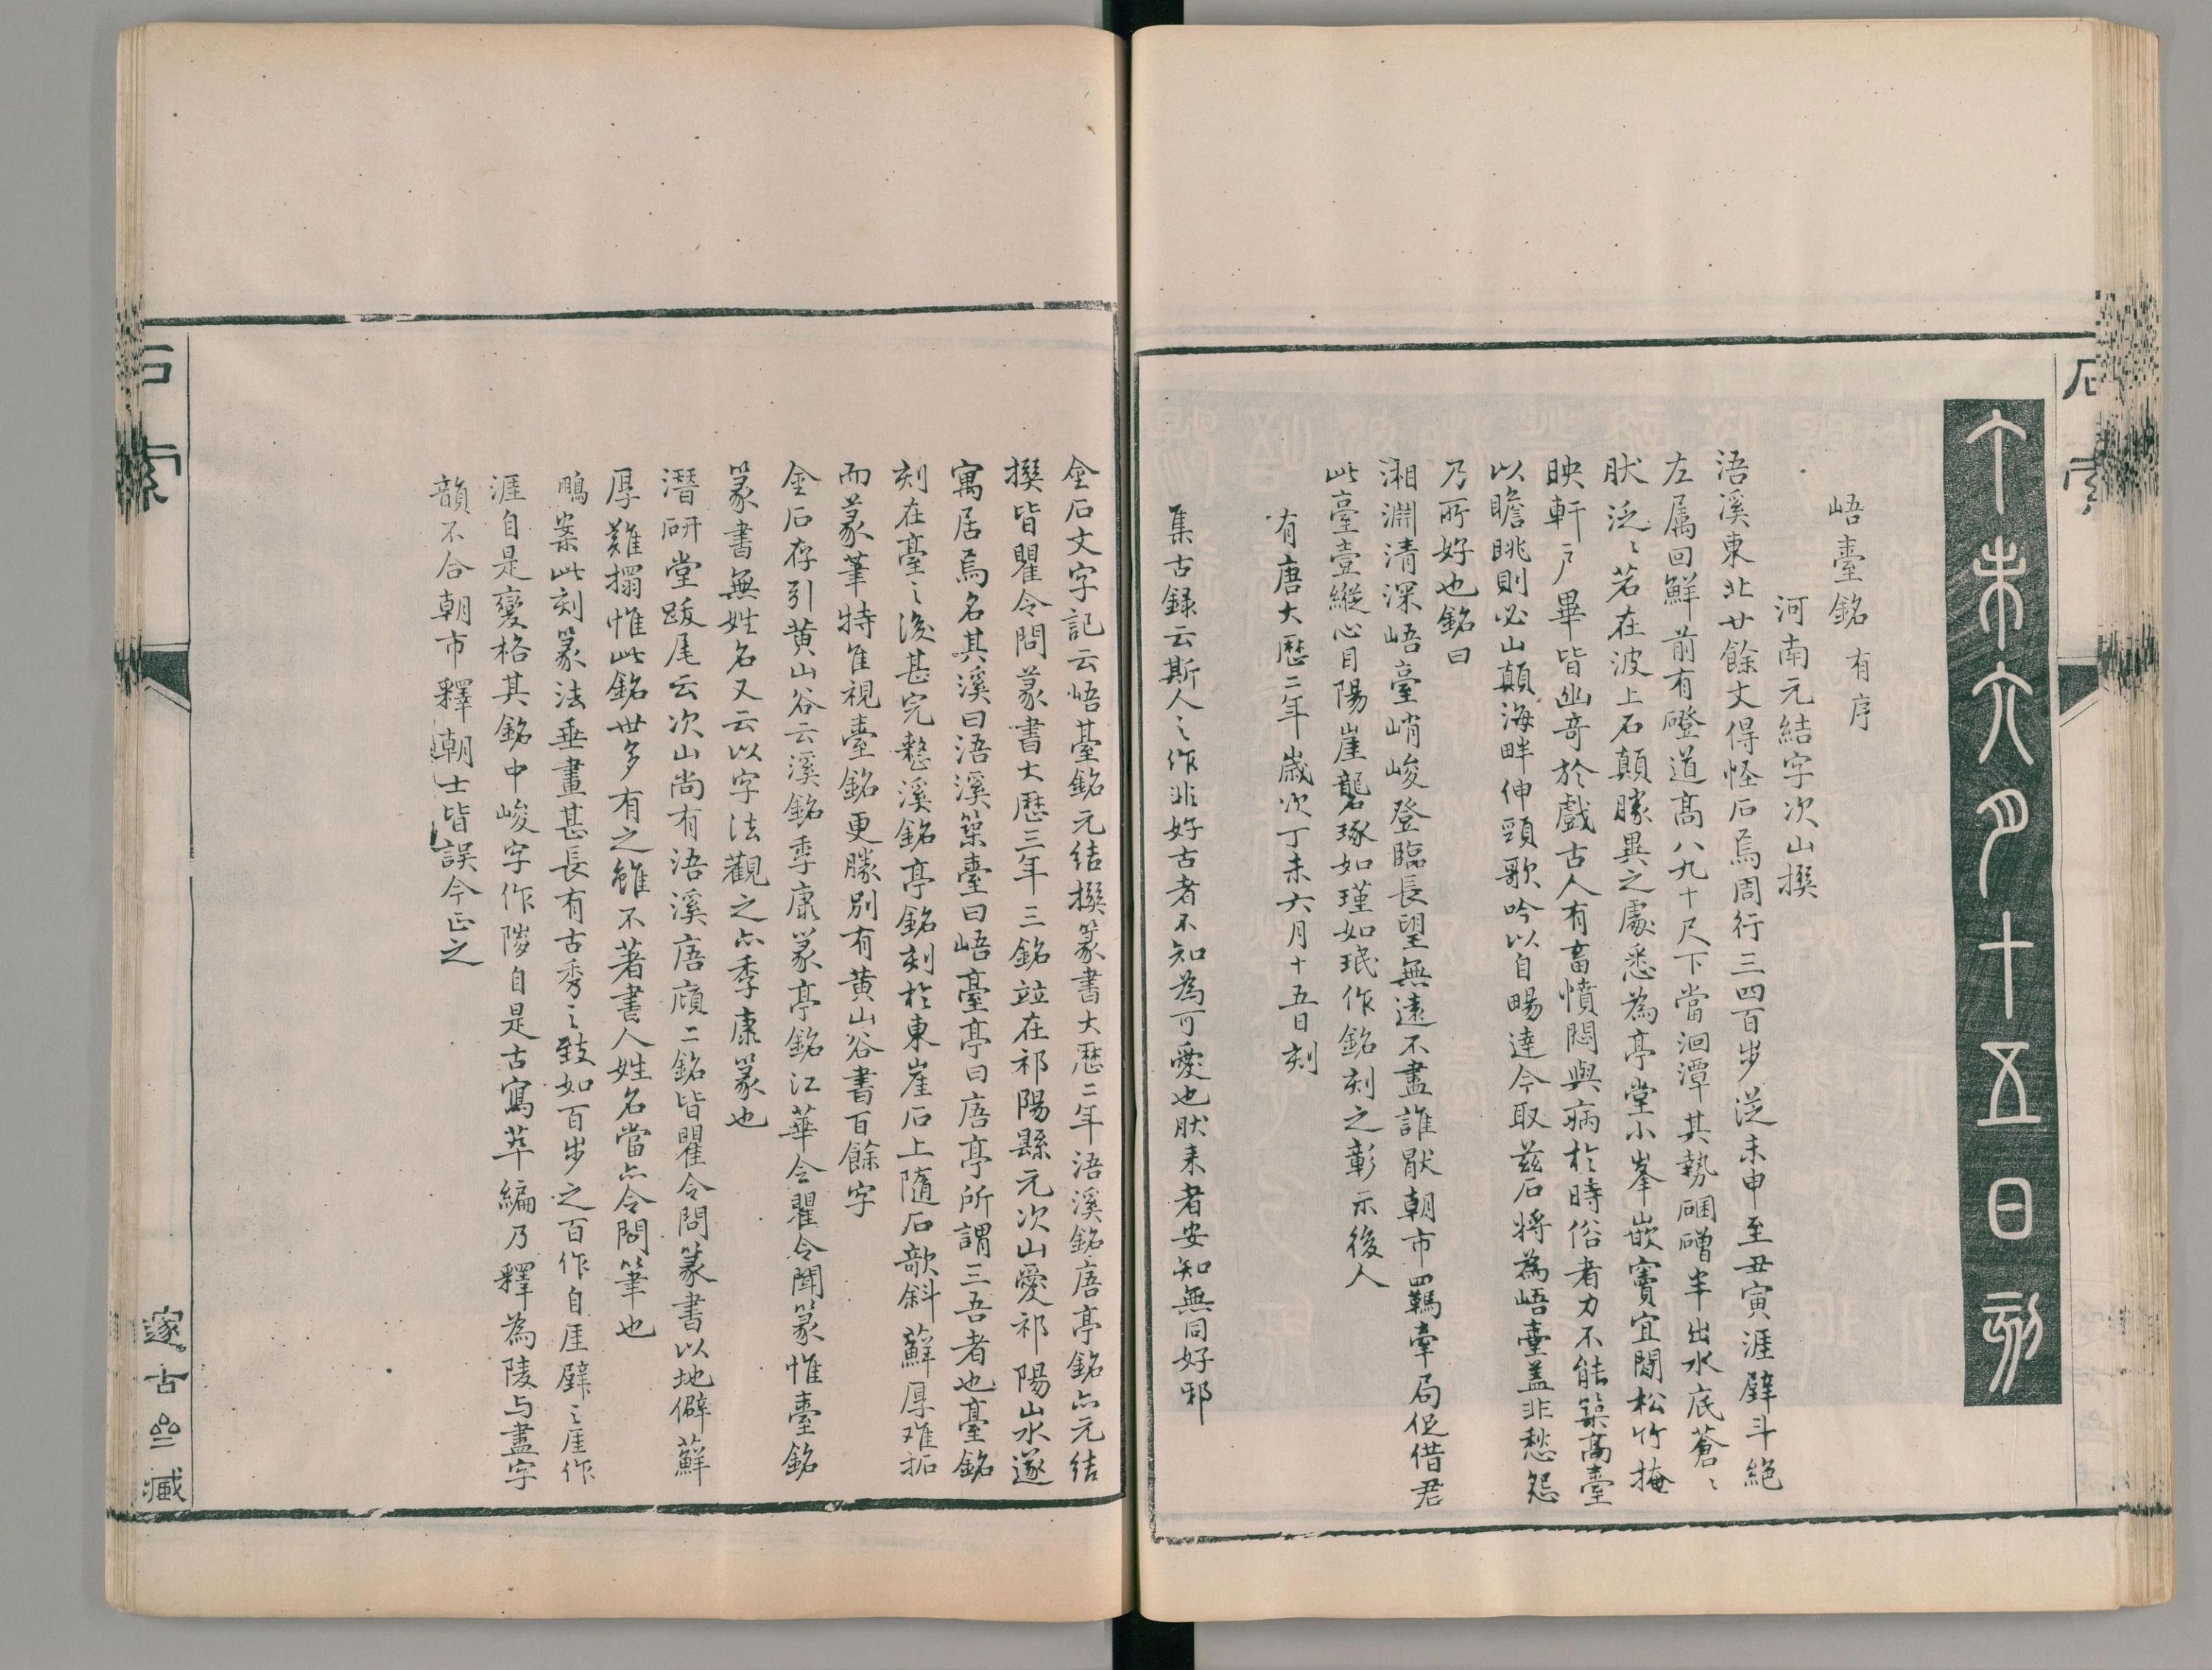 石索
丁未六月十五日刻
峿臺銘 有序
河南元結字次山撰
浯溪東北廿餘丈得怪石焉周行三四百步從未申至丑寅涯壁斗絕
左属回鮮前有磴道高八九十尺下當洄潭其勢硱磳半出水底蒼〻
肰泛〻若在波上石顛勝異之處悉為亭堂小峯嵌竇宜閒松竹掩
映軒戶畢皆幽奇於戲古人有畜憤悶與病於時俗者力不能築高臺
以瞻眺則必山顛海畔伸頸歌吟以自暢達今取兹石將為峿臺盖非愁怨
乃所好也銘曰
湘淵清深峿臺峭峻登臨長望無遠不盡誰猒朝市羈牽局促借君
此臺壹縱心目陽崖礱琢如瑾如珉作銘刻之彰示後人
有唐大歷二年歲次丁未六月十五日刻
集古録云斯人之作非好古者不知為可愛也肰来者安知無同好邪
金石文字記云峿䑓銘元结撰篆書大歷二年浯溪銘㾿亭銘亦元结
撰皆瞿令問篆書大歷三年三銘竝在祁陽縣元次山愛祁陽山水遂
寓居焉名其溪曰浯溪築臺曰峿臺亭曰㾿亭所謂三吾者也臺銘
刻在臺之後甚完整溪銘亭銘刻於東崖石上隨石欹斜蘚厚难拓
而篆筆特佳視臺銘更勝别有黄山谷書百餘字
金石存引黄山谷云溪銘季康篆亭銘江華令瞿令聞篆惟臺銘
篆書無姓名又云以字法觀之亦季康篆也
潛研堂跋尾云次山尚有浯溪㾿廎二銘皆瞿令問篆書以地僻蘚
厚難搨惟此銘世多有之雖不著書人姓名當亦令問筆也
鵬案此刻篆法垂畫甚長有古秀之致如百步之百作自厓壁之崖作
涯自是變格其銘中峻字作陖自是古寫萃編乃釋為陵与盡字
韻不合朝市釋朝士皆誤今正之
石索
邃古亝藏